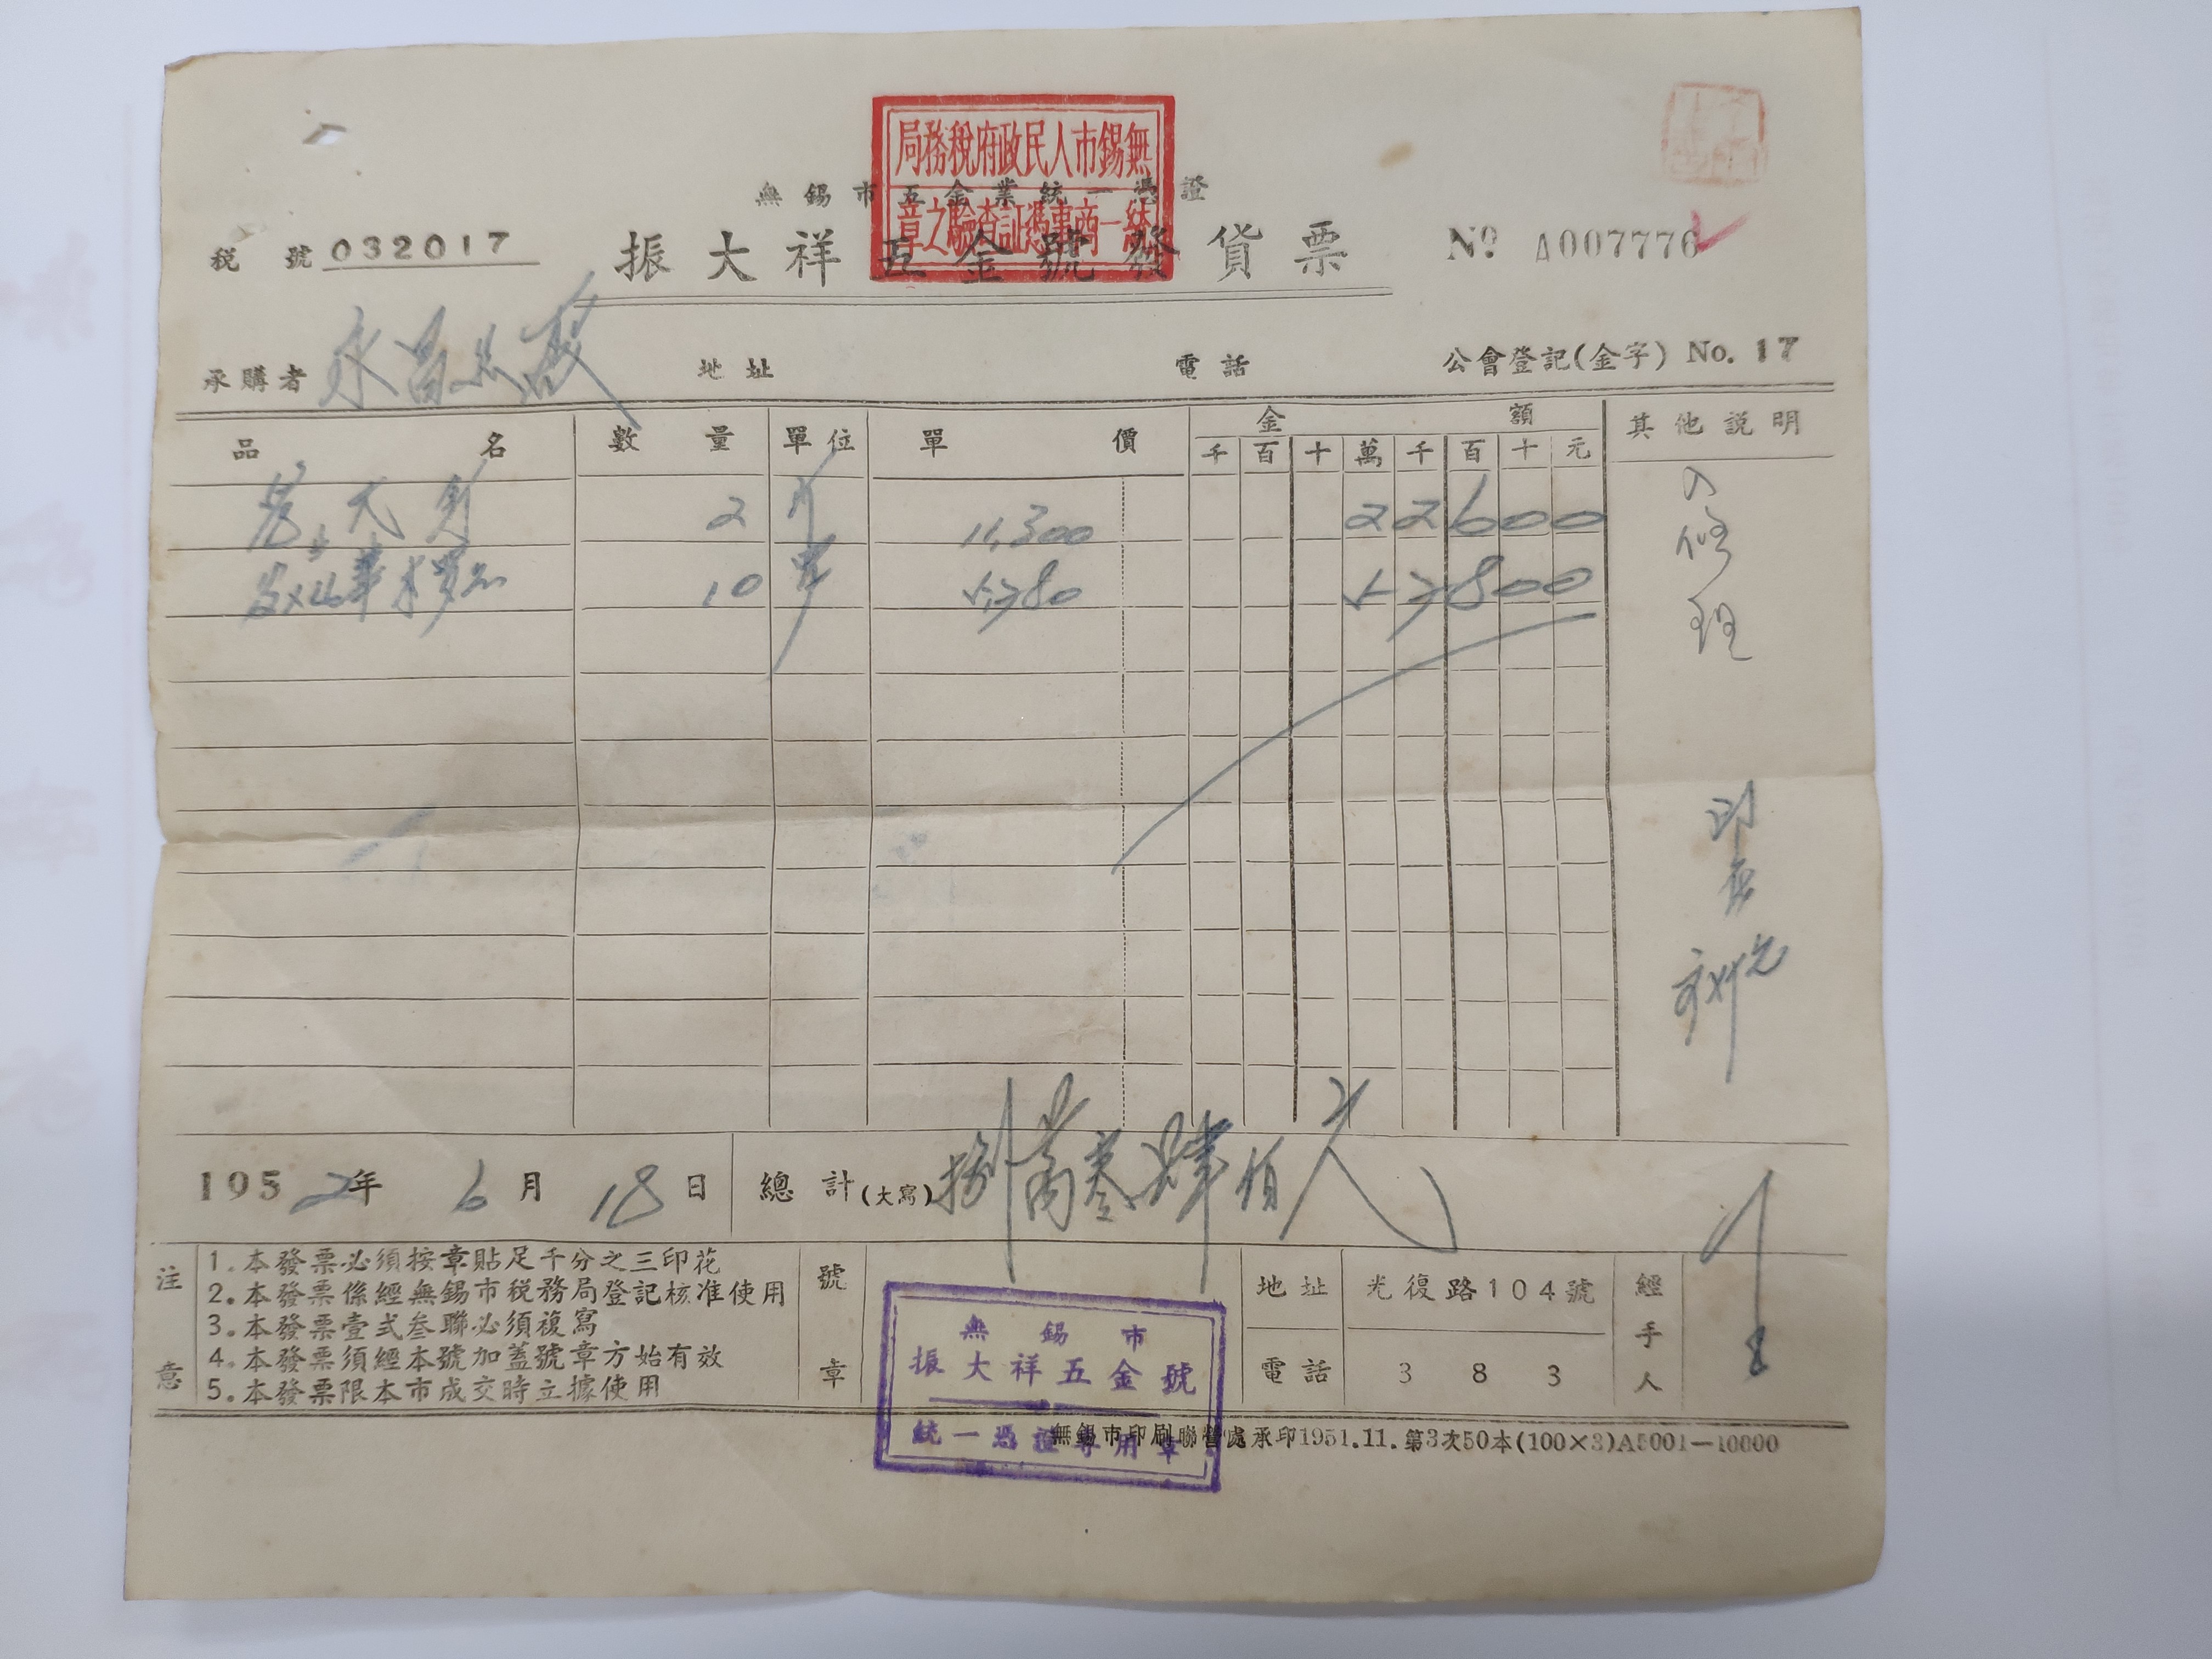 局務稅府政民人市錫無
章之驗查証憑專商一統
無錫市五金業統一憑證
稅號 032017
振大祥五金號發貨票
№ A007776
承購者 永昌絲廠
地址
電話
公會登記(金字) No. 17
品名 數量 單位 單價 金額 其他説明
千 百 十 萬 千 百 十 元
2 斤 11,300 22600
10 羅 5,780 57800
入修理
印
1952年 6月 18日
總計(大寫) 捌萬叁肆佰元
注意
1.本發票必須按章貼足千分之三印花
2.本發票係經無錫市稅務局登記核准使用
3.本發票壹弍叁聯必須複寫
4.本發票須經本號加蓋號章方始有效
5.本發票限本市成交時立據使用
號章
無錫市
振大祥五金號
統一憑證專用章
地址 光復路104號
電話 383
經手人
無錫市印刷聯營處承印1951.11.第3次50本(100×3)A5001—10000